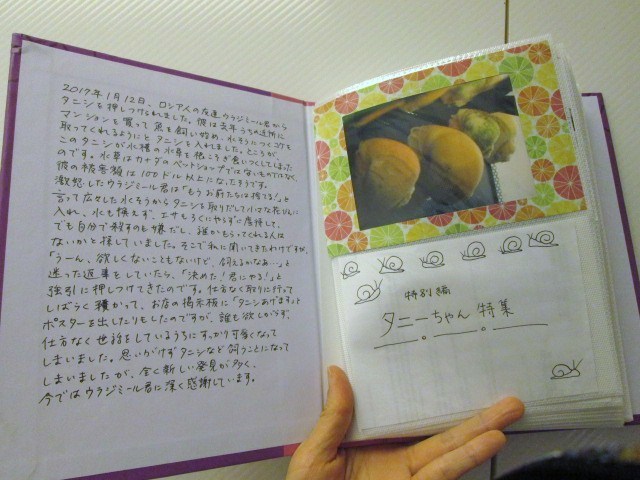 2017年1月12日、ロシア人の友達ウラジミール君から
タニシを押しつけられました。彼は去年うちの近所に
マンションを買って魚を飼い始め、水そうにつくコケを
取ってくれるようにとタニシを入れました。ところが、
このタニシが水槽の水草を根こそぎ食いつくしてしまった
のです。水草はカナダのペットショップでは安いものではなく、
彼の損害額は100ドル以上になったそうです。
激怒したウラジミール君は「もうお前たちは捨てる!」と
言って広々した水そうからタニシを取りだして小さな花びんに
入れ、水も換えず、エサもろくにやらずに虐待して、
でも自分で殺すのも嫌だし、誰かもらってくれる人は
ないかと探していました。そこで私に聞いてきたわけですが、
「うーん、欲しくないこともないけど、飼えるかなあ…」と
迷った返事をしていたら、「決めた!君にやる!」と
強引に押しつけてきたのです。仕方なく取りに行って
しばらく預かって、お店の掲示板に「タニシあげます」と
ポスターを出したりもしたのですが、誰も欲しがらず、
仕方なく世話をしているうちにすっかり可愛くなって
しまいました。思いがけずタニシなど飼うことになって
しまいましたが、全く新しい発見が多く、
今ではウラジミール君に深く感謝しています。
特別編
タニーちゃん 特集